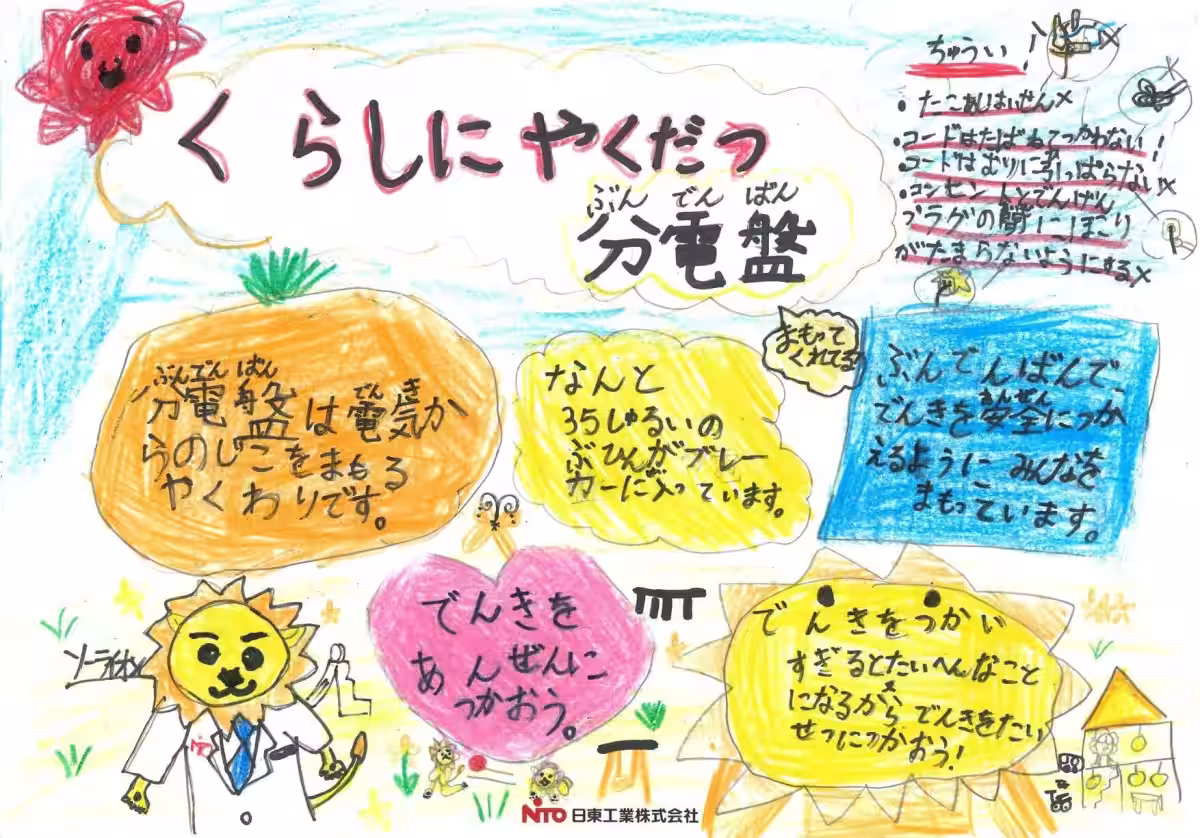 くらしにやくだつ
ぶん でん ばん
分電盤
ちゅうい!
・たこあしはいせん×
・コードはたばねてつかわない!
・コードはむりに引っぱらない×
・コンセントとでんげん
プラグの間にほこり
がたまらないようにする×
まもって
くれてる!
ぶんでん ばん でん き
分電盤は電気か
らのじこをまもる
やくわりです。
なんと
35しゅるいの
ぶひんがブレー
カーに入っています。
ぶんでんばんで、
あんぜん
でんきを安全につか
えるようにみんなを
まもっています。
でんきを
あんぜんに
つかおう。
でんきをつかい
すぎるとたいへんなこと
になるからでんきをたい
せつにつかおう!
ソーライオン
NITO
NITO 日東工業株式会社